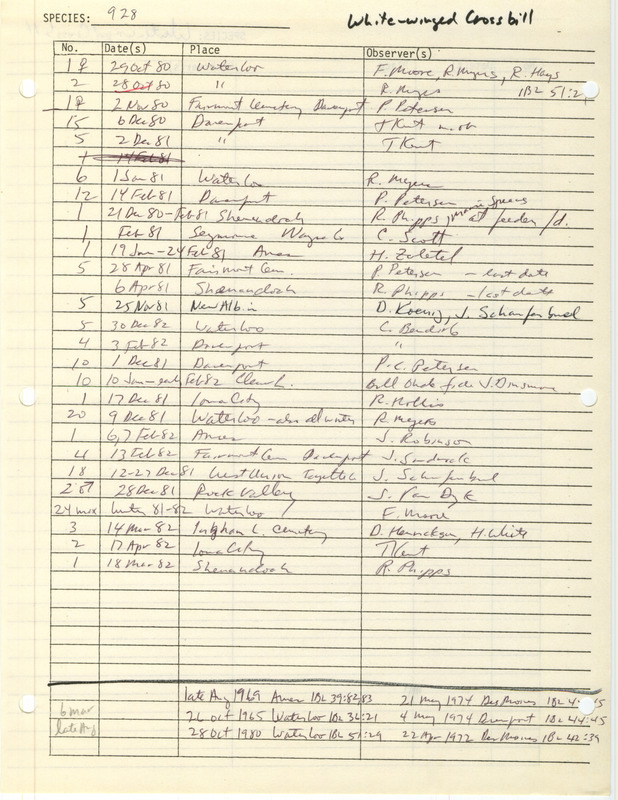 SPECIES: 928 White-winged Crossbill
No. Date(s) Place Observer(s)
1♀ 29 Oct 80 Waterloo F. Moore, R. Myers, R. Hays
2 28 Oct 80 " R. Myers IBL 51:2
1♀ 2 Nov 80 Fairmount Cemetery Davenport P. Petersen
15 6 Dec 80 Davenport T Kent
5 2 Dec 81 " T Kent
14 Feb 81
6 1 Jan 81 Waterloo R. Myers
12 14 Feb 81 Davenport P. Petersen
1 21 Dec 80 - Feb 81 Shenandoah R. Phipps, at feeder
1 Feb 81 Seymour Wayne Co C. Scott
1 19 Jan - 24 Feb 81 Ames H. Zaletel
5 28 Apr 81 Fairmount Cem. P. Petersen - last date
6 Apr 81 Shenandoah R. Phipps - last date
5 25 Nov 81 New Albin D. Koenig, J. Schaufenbuel
8 30 Dec 82 Waterloo C. Bendorf
4 3 Feb 82 Davenport "
10 1 Dec 81 Davenport P. C. Petersen
10 10 Jan - Feb 82 Clear L. fide J. Dinsmore
1 17 Dec 81 Iowa City R. Hollis
20 9 Dec 81 Waterloo - also all winter R. Myers
1 6,7 Feb 82 Ames J. Robinson
4 13 Feb 82 Fairmount Cem Davenport J. Sandrock
18 12-27 Dec 81 West Union J. Schaufenbuel
2 28 Dec 81 Rock Valley J. Van Dyk
24 max winter 81-82 Waterloo F. Moore
3 14 Mar 82 Ingham L. Cemetery D. Henrickson, H. White
2 17 Apr 82 Iowa City T Kent
1 18 Mar 82 Shenandoah R. Phipps
late Aug 1969 Ames IBL 39:82,83 21 May 1974 Des Moines IBL 44:45
6 mar 26 Oct 1965 Waterloo IBL 36:21 4 May 1974 Davenport IBL 44:45
late Aug 28 Oct 1980 Waterloo IBL 51:29 22 Apr 1972 Des Moines IBL 42:39